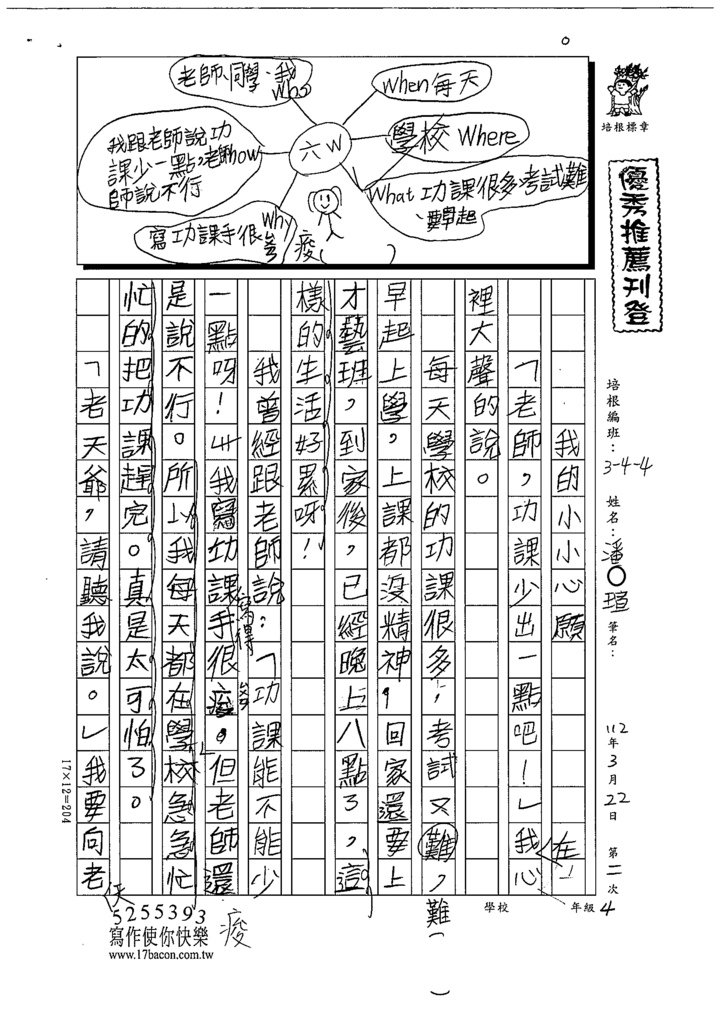 老師、同學、我
Who
When每天
我跟老師說功
課少一點,老師how
師說不行
六W
學校 Where
What功課很多、考試難
、要早起
寫功課手很
Why
痠
培根標章
優秀推薦刊登
培根編班:3-4-4
姓名:潘○瑄
筆名:
112年3月22日
第二次
4年級
學校
我的小小心願
「老師,功課少出一點吧!」我在心
裡大聲的說。
每天學校的功課很多,考試又難,難
早起上學,上課都沒精神,回家還要上
才藝班,到家後,已經晚上八點了,這
樣的生活好累呀!
我曾經跟老師說:「功課能不能少
一點呀!我寫功課手寫得很痠。」但老師還
是說不行。所以我每天都在學校急急忙
忙的把功課趕完。真是太可怕了。
「老天爺,請聽我說。」我要向老天
痠
17×12=204
5255393
寫作使你快樂
www.17bacon.com.tw